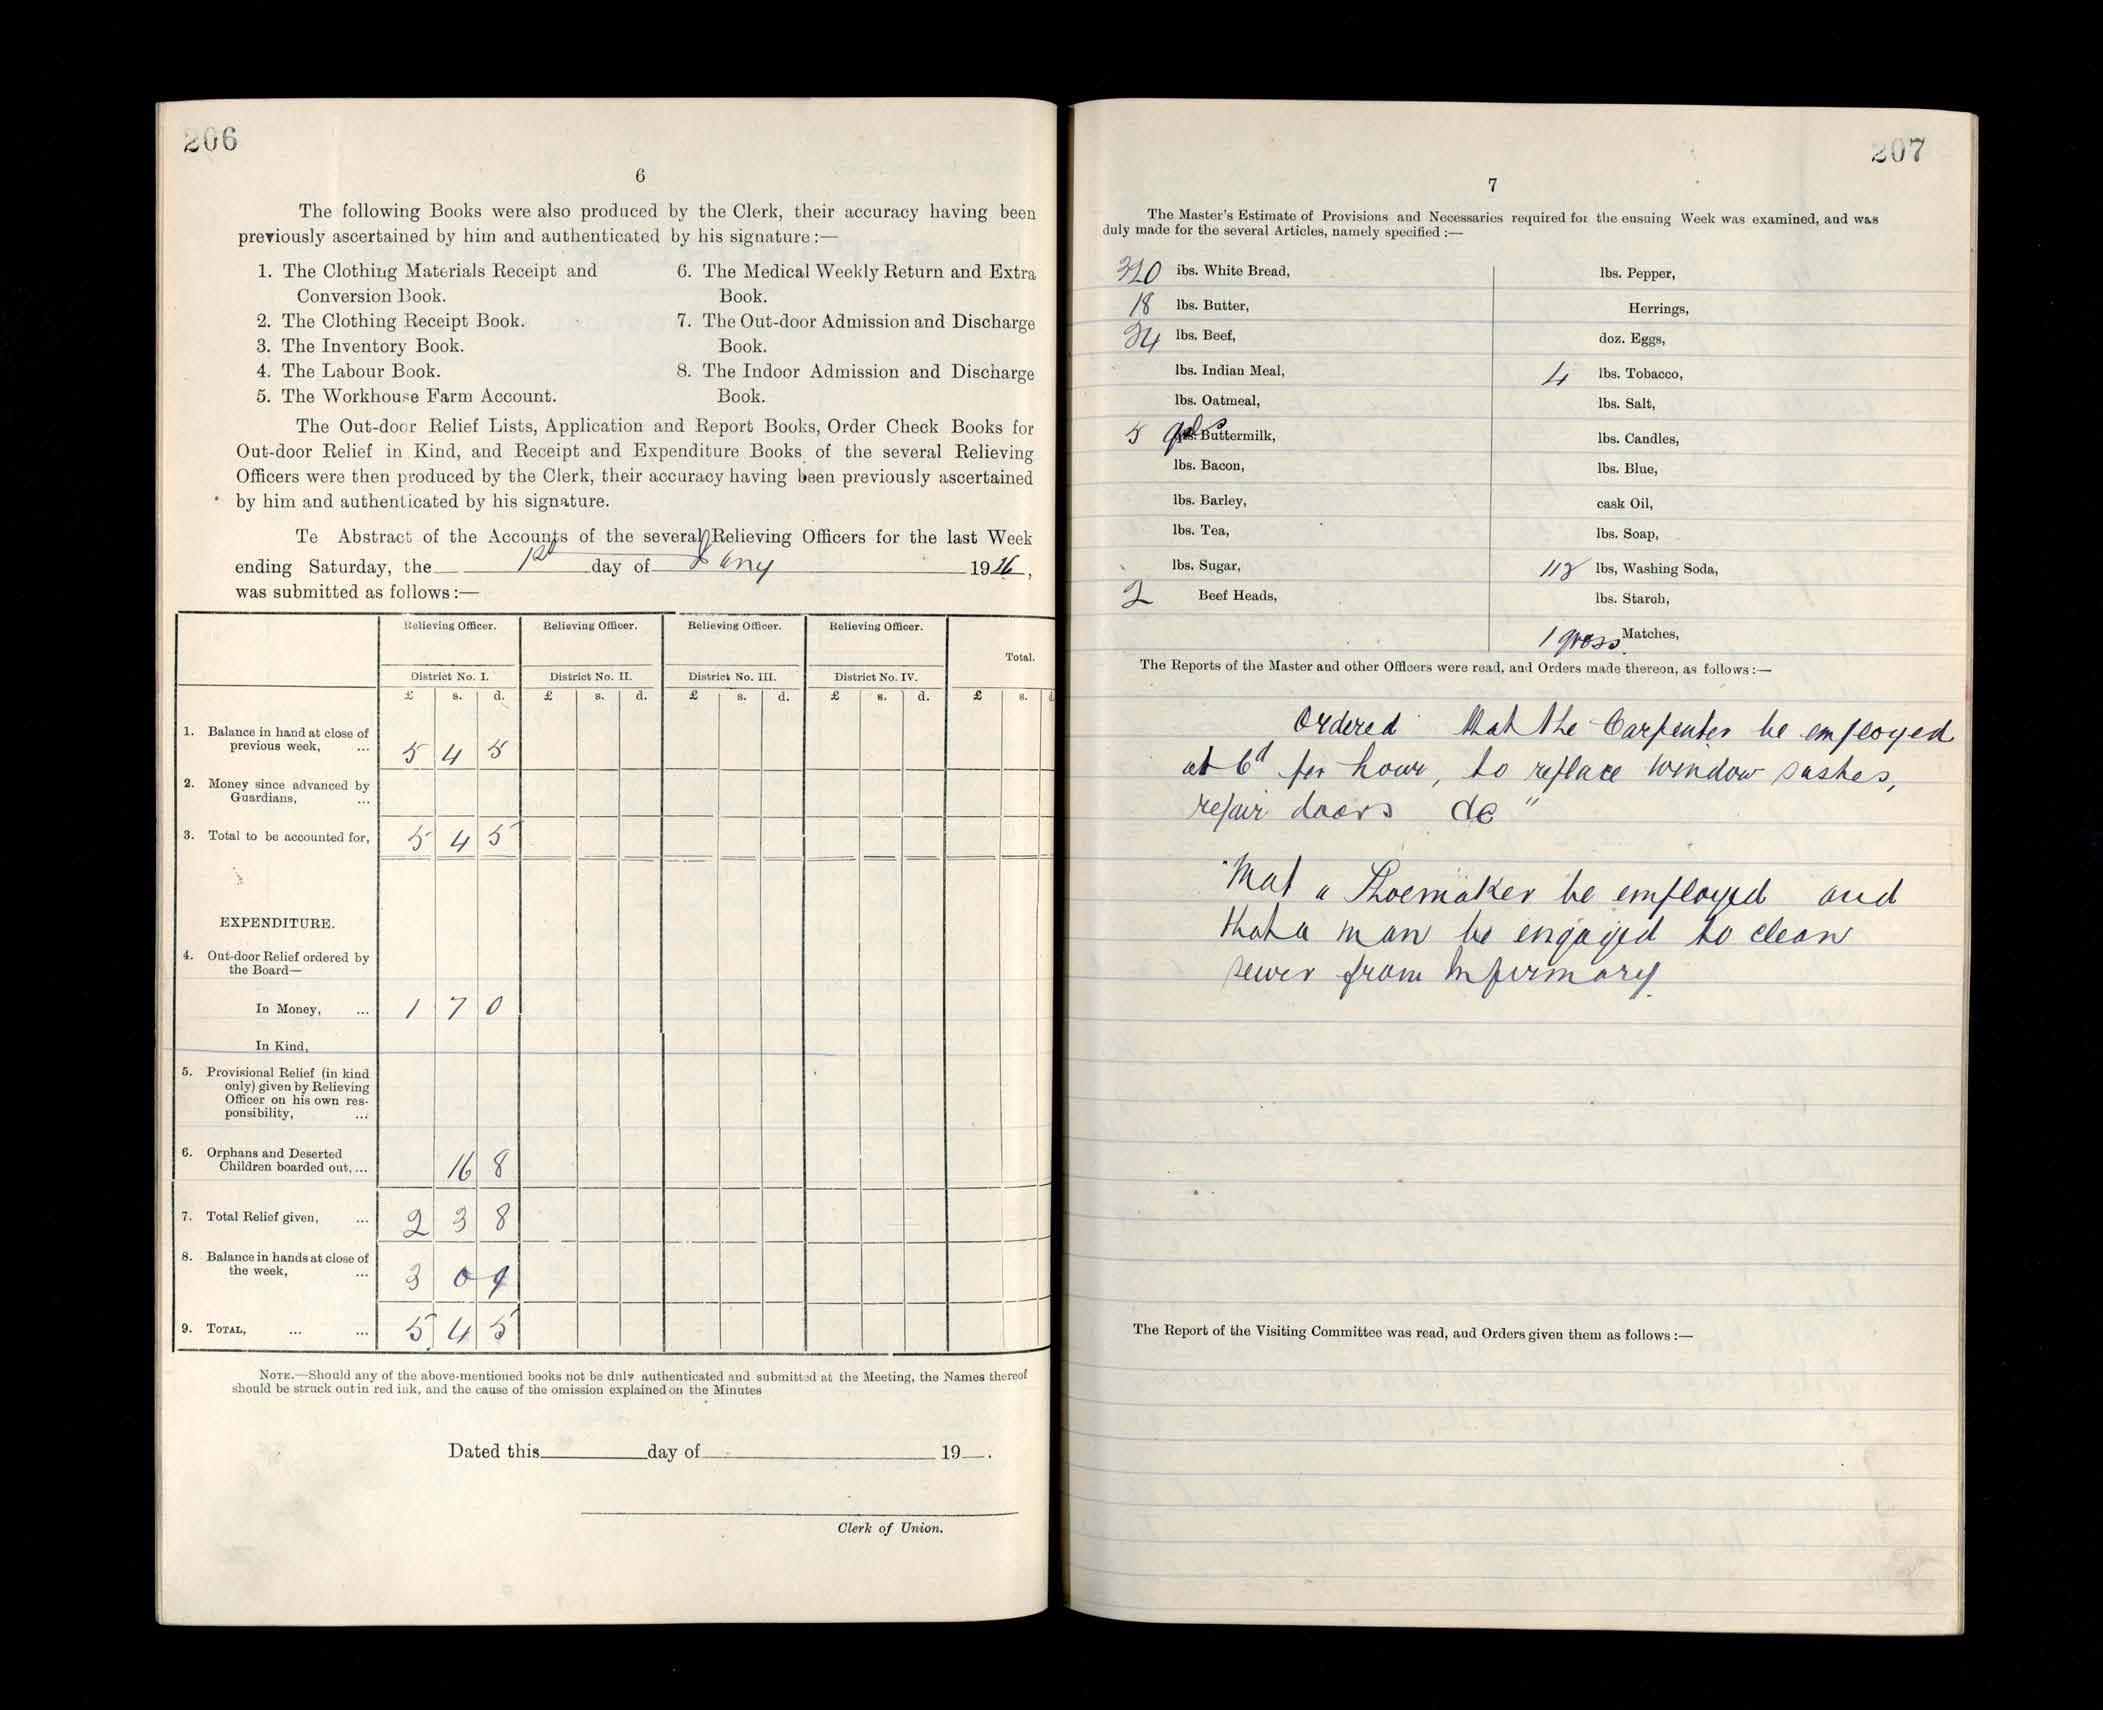 206
6
The following Books were also produced by the Clerk, their accuracy having been
previously ascertained by him and authenticated by his signature :—
1. The Clothing Materials Receipt and
Conversion Book.
2. The Clothing Receipt Book.
3. The Inventory Book.
4. The Labour Book.
5. The Workhouse Farm Account.
6. The Medical Weekly Return and Extra
Book.
7. The Out-door Admission and Discharge
Book.
8. The Indoor Admission and Discharge
Book.
The Out-door Relief Lists, Application and Report Books, Order Check Books for
Out-door Relief in Kind, and Receipt and Expenditure Books of the several Relieving
Officers were then produced by the Clerk, their accuracy having been previously ascertained
by him and authenticated by his signature.
Te Abstract of the Accounts of the several Relieving Officers for the last Week
ending Saturday, the 1st day of Jany 1916,
was submitted as follows :—
Relieving Officer. Relieving Officer. Relieving Officer. Relieving Officer.
Total.
District No. I. District No. II. District No. III. District No. IV.
£ s. d. £ s. d. £ s. d. £ s. d. £ s. d
1. Balance in hand at close of
previous week, ... 5 4 5
2. Money since advanced by
Guardians, ...
3. Total to be accounted for, 5 4 5
EXPENDITURE.
4. Out-door Relief ordered by
the Board—
In Money, ... 1 7 0
In Kind,
5. Provisional Relief (in kind
only) given by Relieving
Officer on his own res-
ponsibility, ...
6. Orphans and Deserted
Children boarded out, ... 16 8
7. Total Relief given, ... 2 3 8
8. Balance in hands at close of
the week, ... 3 0 9
9. TOTAL, ... ... 5 4 5
NOTE.—Should any of the above-mentioned books not be duly authenticated and submitted at the Meeting, the Names thereof
should be struck out in red ink, and the cause of the omission explained on the Minutes
Dated this day of 19 .
Clerk of Union.
207
7
The Master's Estimate of Provisions and Necessaries required for the ensuing Week was examined, and was
duly made for the several Articles, namely specified :—
320 lbs. White Bread,
18 lbs. Butter,
34 lbs. Beef,
lbs. Indian Meal,
lbs. Oatmeal,
5 gals Buttermilk,
lbs. Bacon,
lbs. Barley,
lbs. Tea,
lbs. Sugar,
2 Beef Heads,
lbs. Pepper,
Herrings,
doz. Eggs,
4 lbs. Tobacco,
lbs. Salt,
lbs. Candles,
lbs. Blue,
cask Oil,
lbs. Soap,
112 lbs, Washing Soda,
lbs. Starch,
1 gross Matches,
The Reports of the Master and other Officers were read, and Orders made thereon, as follows :—
Ordered that the Carpenter be employed
at 6d per hour, to replace window sashes,
repair doors &c "
"That a Shoemaker be employed and
that a man be engaged to clean
sewer from Infirmary.
The Report of the Visiting Committee was read, and Orders given them as follows :—